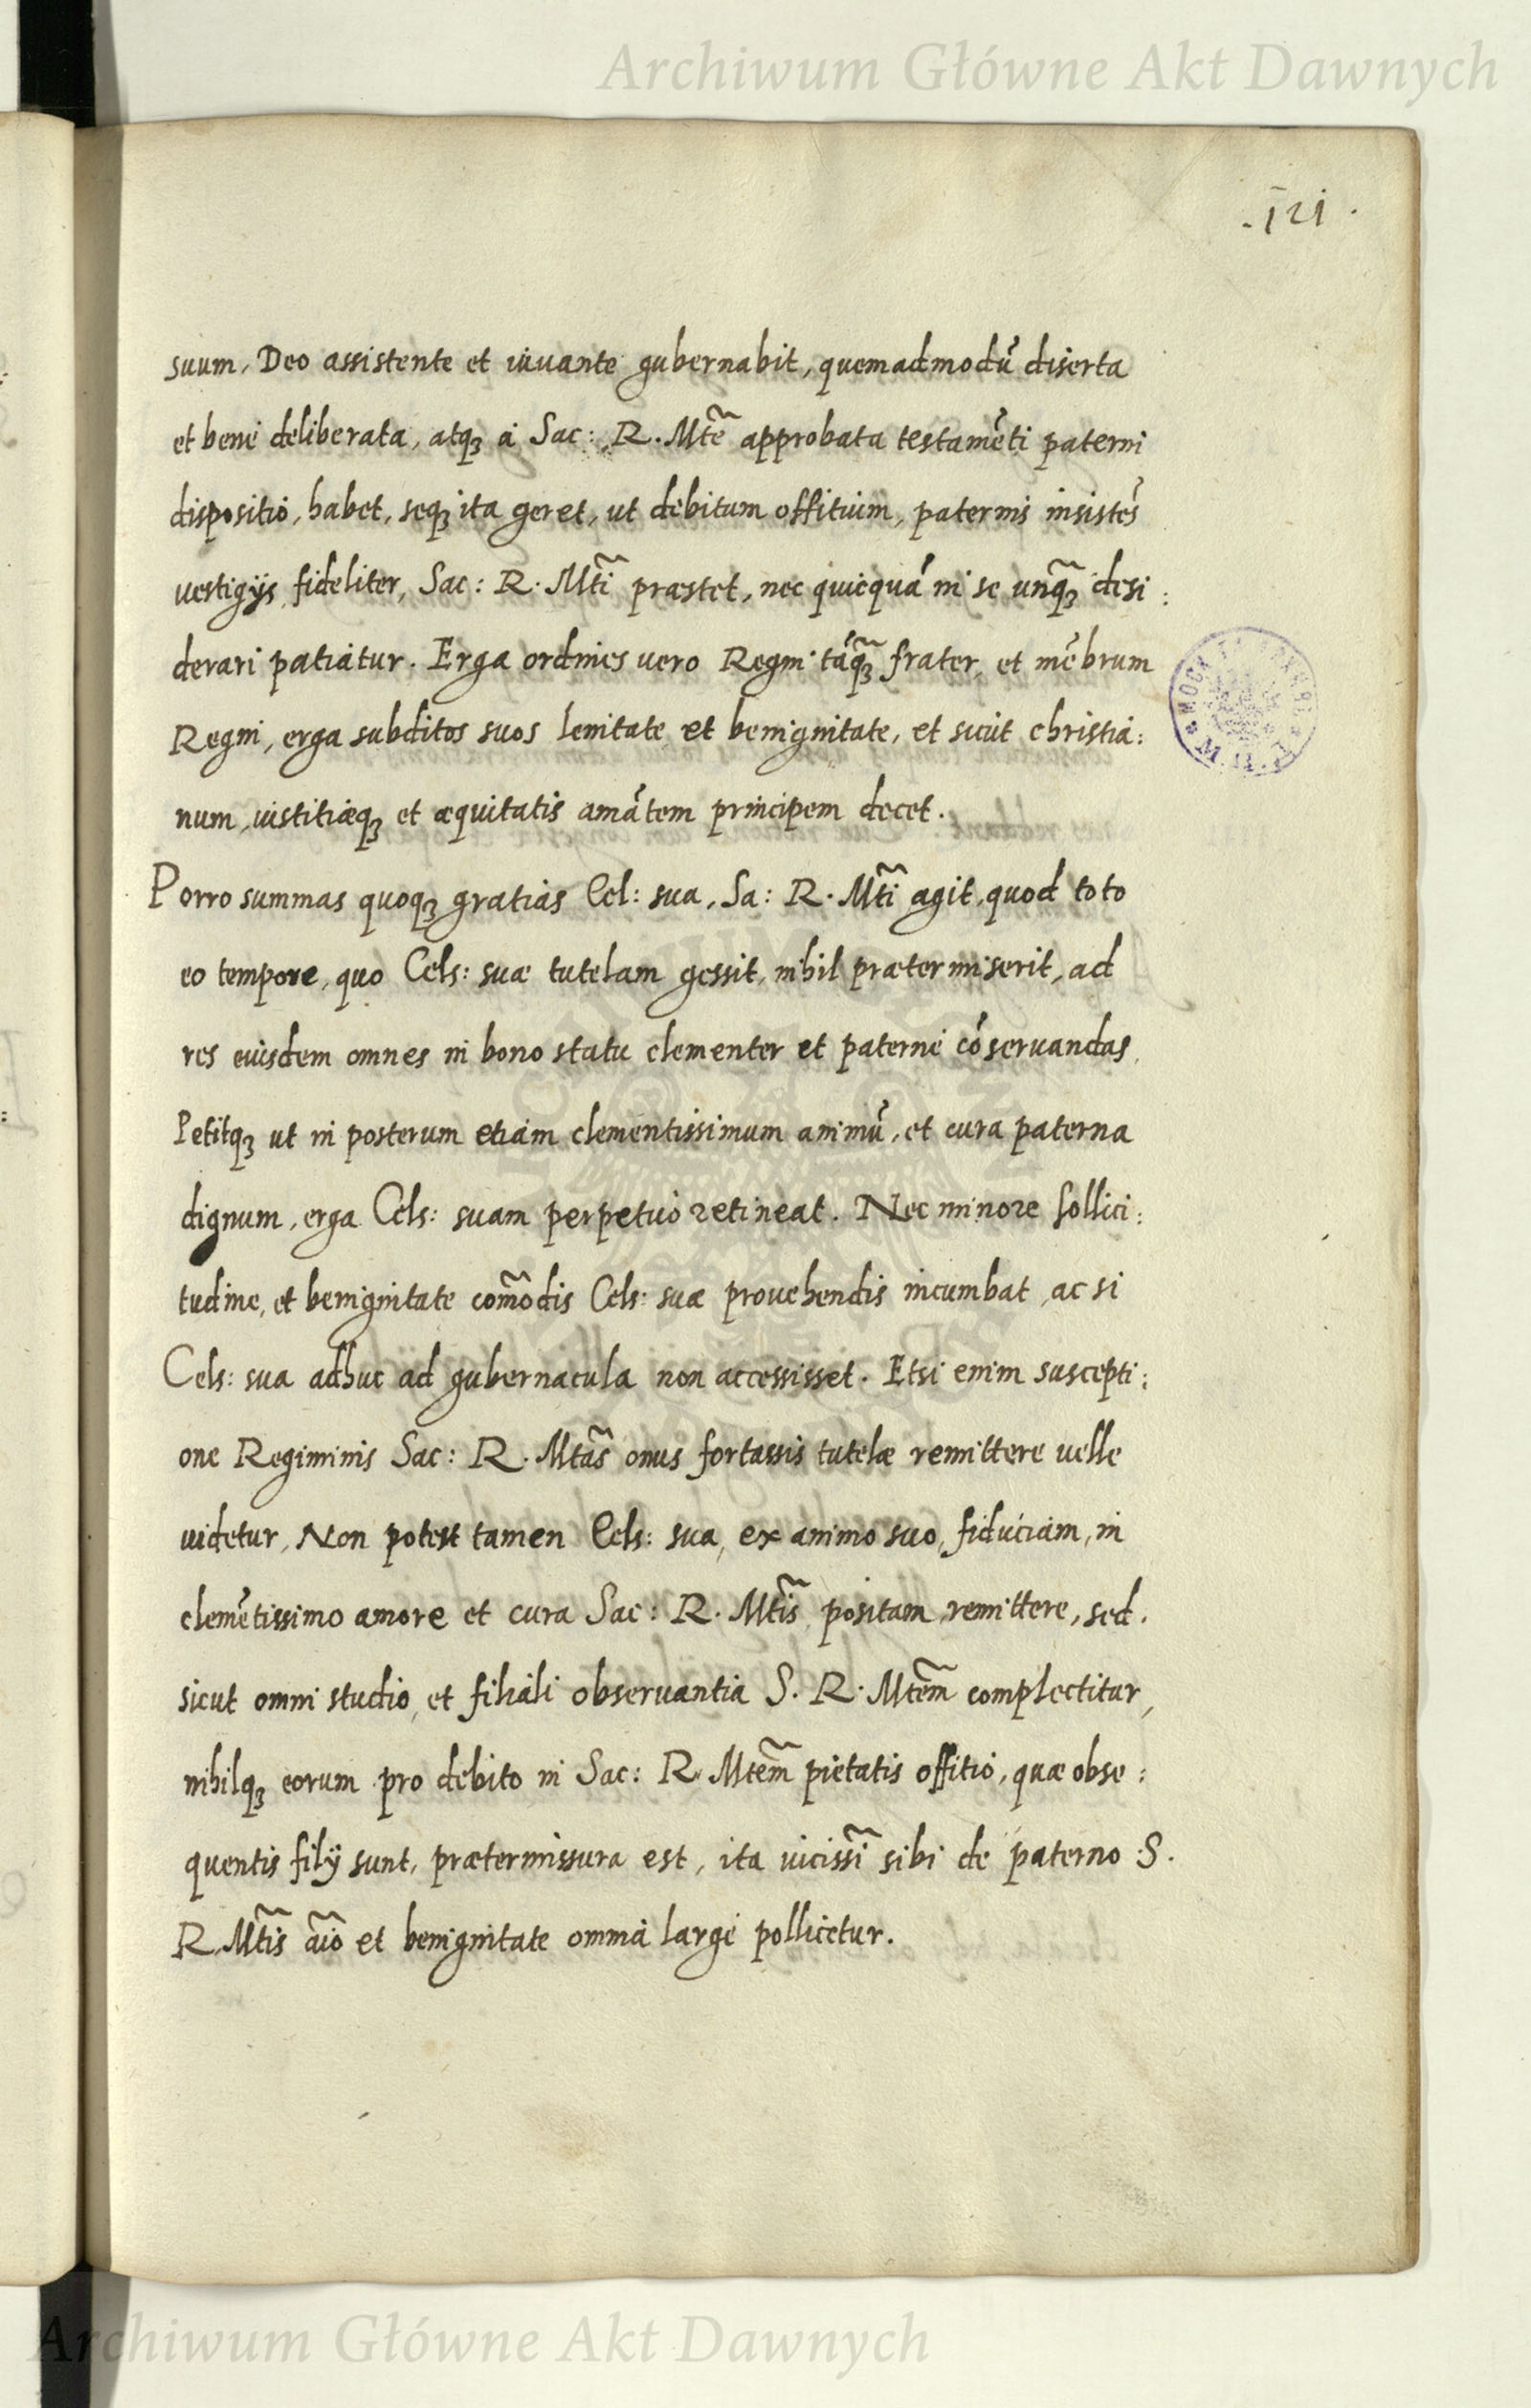 Archiwum Główne Akt Dawnych
.121.
suum, Deo assistente et iuuante gubernabit, quemadmodũ diserta
et bene deliberata, atqꝫ à Sac: R. Mte͠ approbata testamẽti paterni
dispositio, habet, seqꝫ ita geret, ut debitum offitium, paternis insistẽs
uestigijs fideliter, Sac: R. Mti͠ præstet, nec quicquã in se unq̃ꝫ desi:
derari patiatur. Erga ordines uero Regni tãq̃ꝫ frater, et mẽbrum
Regni, erga subditos suos lenitate et benignitate, et sicut christia:
num, iustitiæqꝫ et æquitatis amãtem principem decet.
Porro summas quoqꝫ gratias Cel: sua, Sa: R. Mti͠ agit, quod toto
eo tempore, quo Cels: suæ tutelam gessit, nihil prætermiserit, ad
res eiusdem omnes in bono statu clementer et paternè cõseruandas,
Petitqꝫ ut in posterum etiam clementissimum animũ, et cura paterna
dignum, erga Cels: suam perpetuò retineat. Nec minore sollici:
tudine, et benignitate com̃odis Cels: suæ prouehendis incumbat, ac si
Cels: sua adhuc ad gubernacula non accessisset. Etsi enim suscepti:
one Regiminis Sac: R. Mta͠s onus fortassis tutelæ remittere uelle
uidetur, Non potest tamen Cels: sua, ex animo suo, fiduciam, in
clemẽtissimo amore et cura Sac: R. Mti͠s positam, remittere, sed.
sicut omni studio, et filiali obseruantia S. R. Mte͠m complectitur,
nihilqꝫ eorum pro debito in Sac: R. Mte͠m pietatis offitio, quæ obse:
quentis filij sunt, prætermissura est, ita uicissi͠ sibi de paterno S.
R. Mti͠s ai͠o et benignitate omnia largè pollicetur.
Archiwum Główne Akt Dawnych